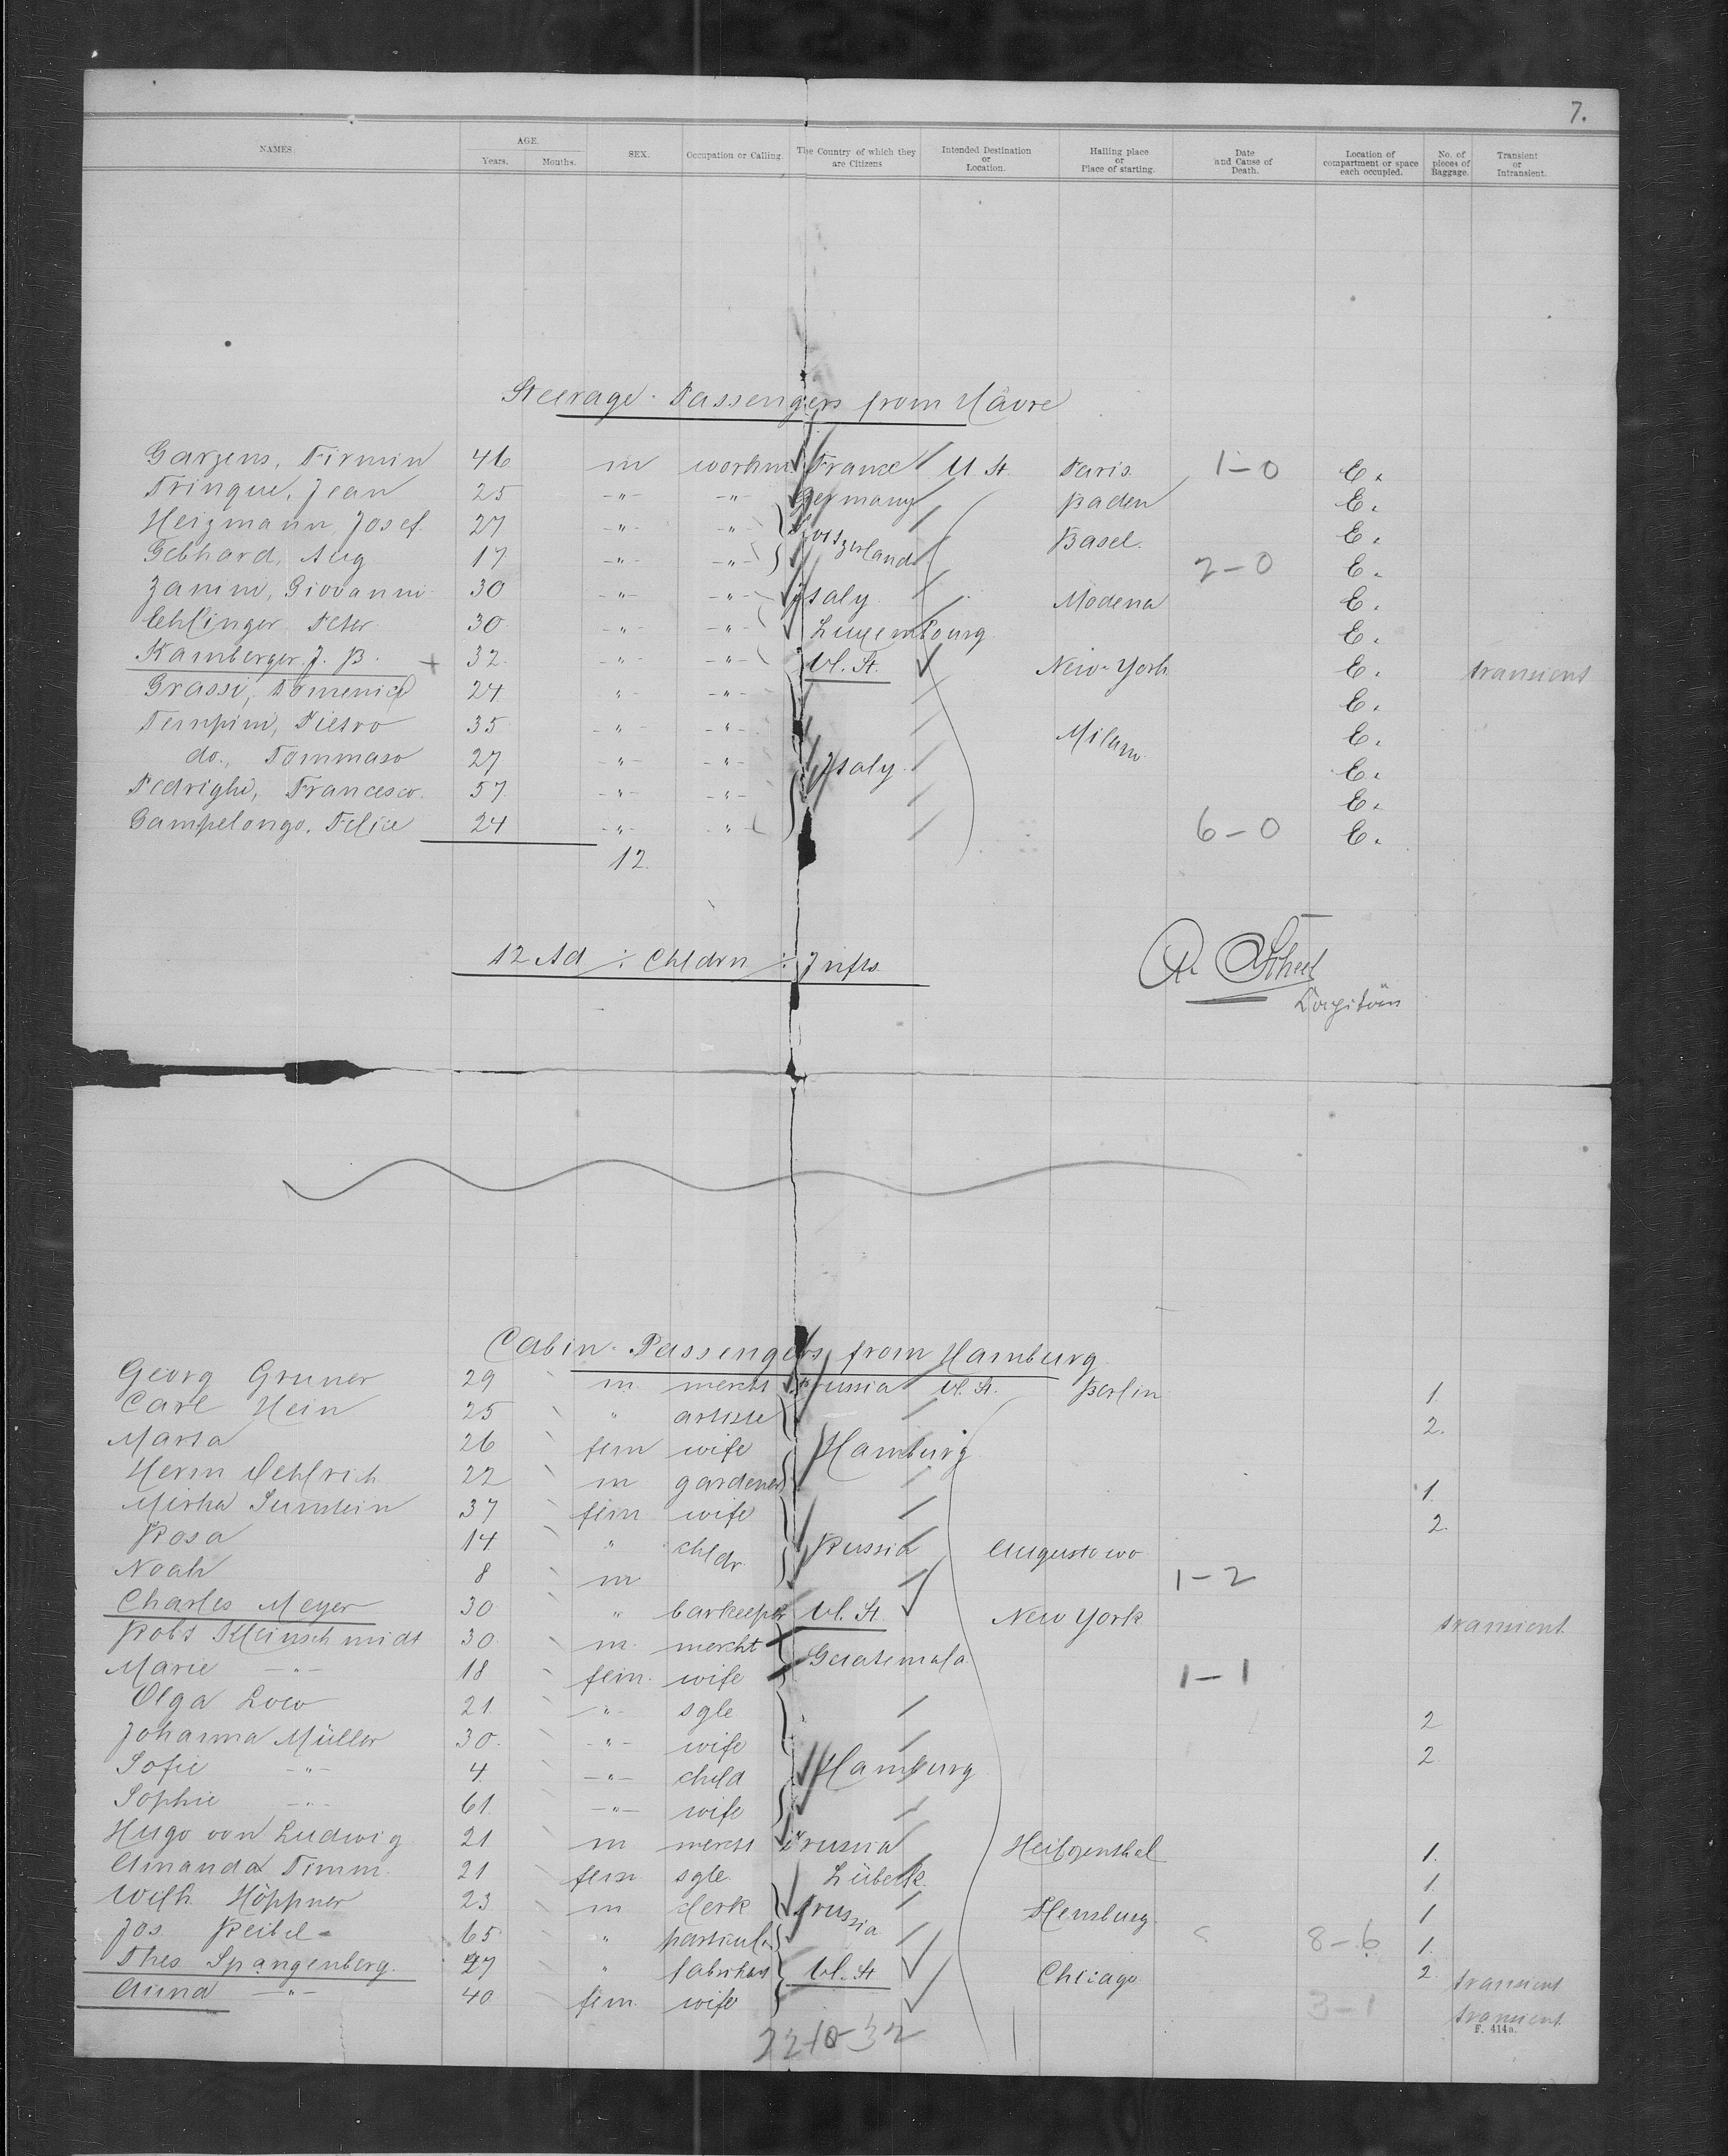 7.
NAMES. AGE. Years. Months. SEX. Occupation or Calling. The Country of which they are Citizens Intended Destination or Location. Hailing place or Place of starting. Date and Cause of Death. Location of compartment or space each occupied. No. of pieces of Baggage. Transient or Intransient.
Steerage-Passengers from Hâvre
Garzens, Firmin 46 m workm France U St. Paris. 1-0 E.
Tringue, Jean 25 -"- -"- Germany Baden E.
Heizmann Josef. 27 -"- -"- Switzerland Basel. E.
Gebhard, Aug 17 -"- -"- 2-0 E.
Zanini, Giovanni 30 -"- -"- Italy Modena E.
Ehlinger Peter 30 -"- -"- Luxembourg. E.
Kamberger. J. B. + 32. -"- -"- U. St. New-York E. transient
Grassi, Domenico 24 " -"- E.
Tempini, Pietro 35 -"- -"- Milano E.
do., Tommaso 27 -"- -"- Italy. E.
Pedrighi, Francesco. 57 -"- -"- E.
Campelongo, Felice 24 -"- " 6-0 E.
12.
12 Ad ÷ Chldrn ÷ Infts
Capitän
Cabin-Passengers from Hamburg.
Georg Gruner 29 m mercht Prussia U. St. Berlin 1.
Carl Hein 25 " artiste 2.
Marta 26 fem wife Hamburg
Herm Oehlrich 22 m gardener 1.
Mirha Sunstein 37 fem wife 2.
Rosa 14 " chldr. Russia Augustowo
Noah 8 m 1-2
Charles Meyer 30 " barkeeper U. St. New York transient
Robt Kleinschmidt 30 m. mercht Guatemala
Marie -"- 18 fem. wife 1-1
Olga Löw 21 -"- sgle 2
Johanna Müller 30. -"- wife 2.
Sofie -"- 4 -"- child Hamburg
Sophie -"- 61. -"- wife
Hugo von Ludwig 21 m mercht Prussia Heilgenthal 1.
Amanda Timm. 21 fem sgle. Lübeck. 1.
Wilh. Höppner 23 m clerk Prussia Flensburg. 1
Jos Reibel 65 " particul. 8-6 1.
Thes Spangenberg. 47 " fabrikant U. St Chicago 2 transient
Anna -"- 40 fem. wife 3-1 transient
F. 414a.